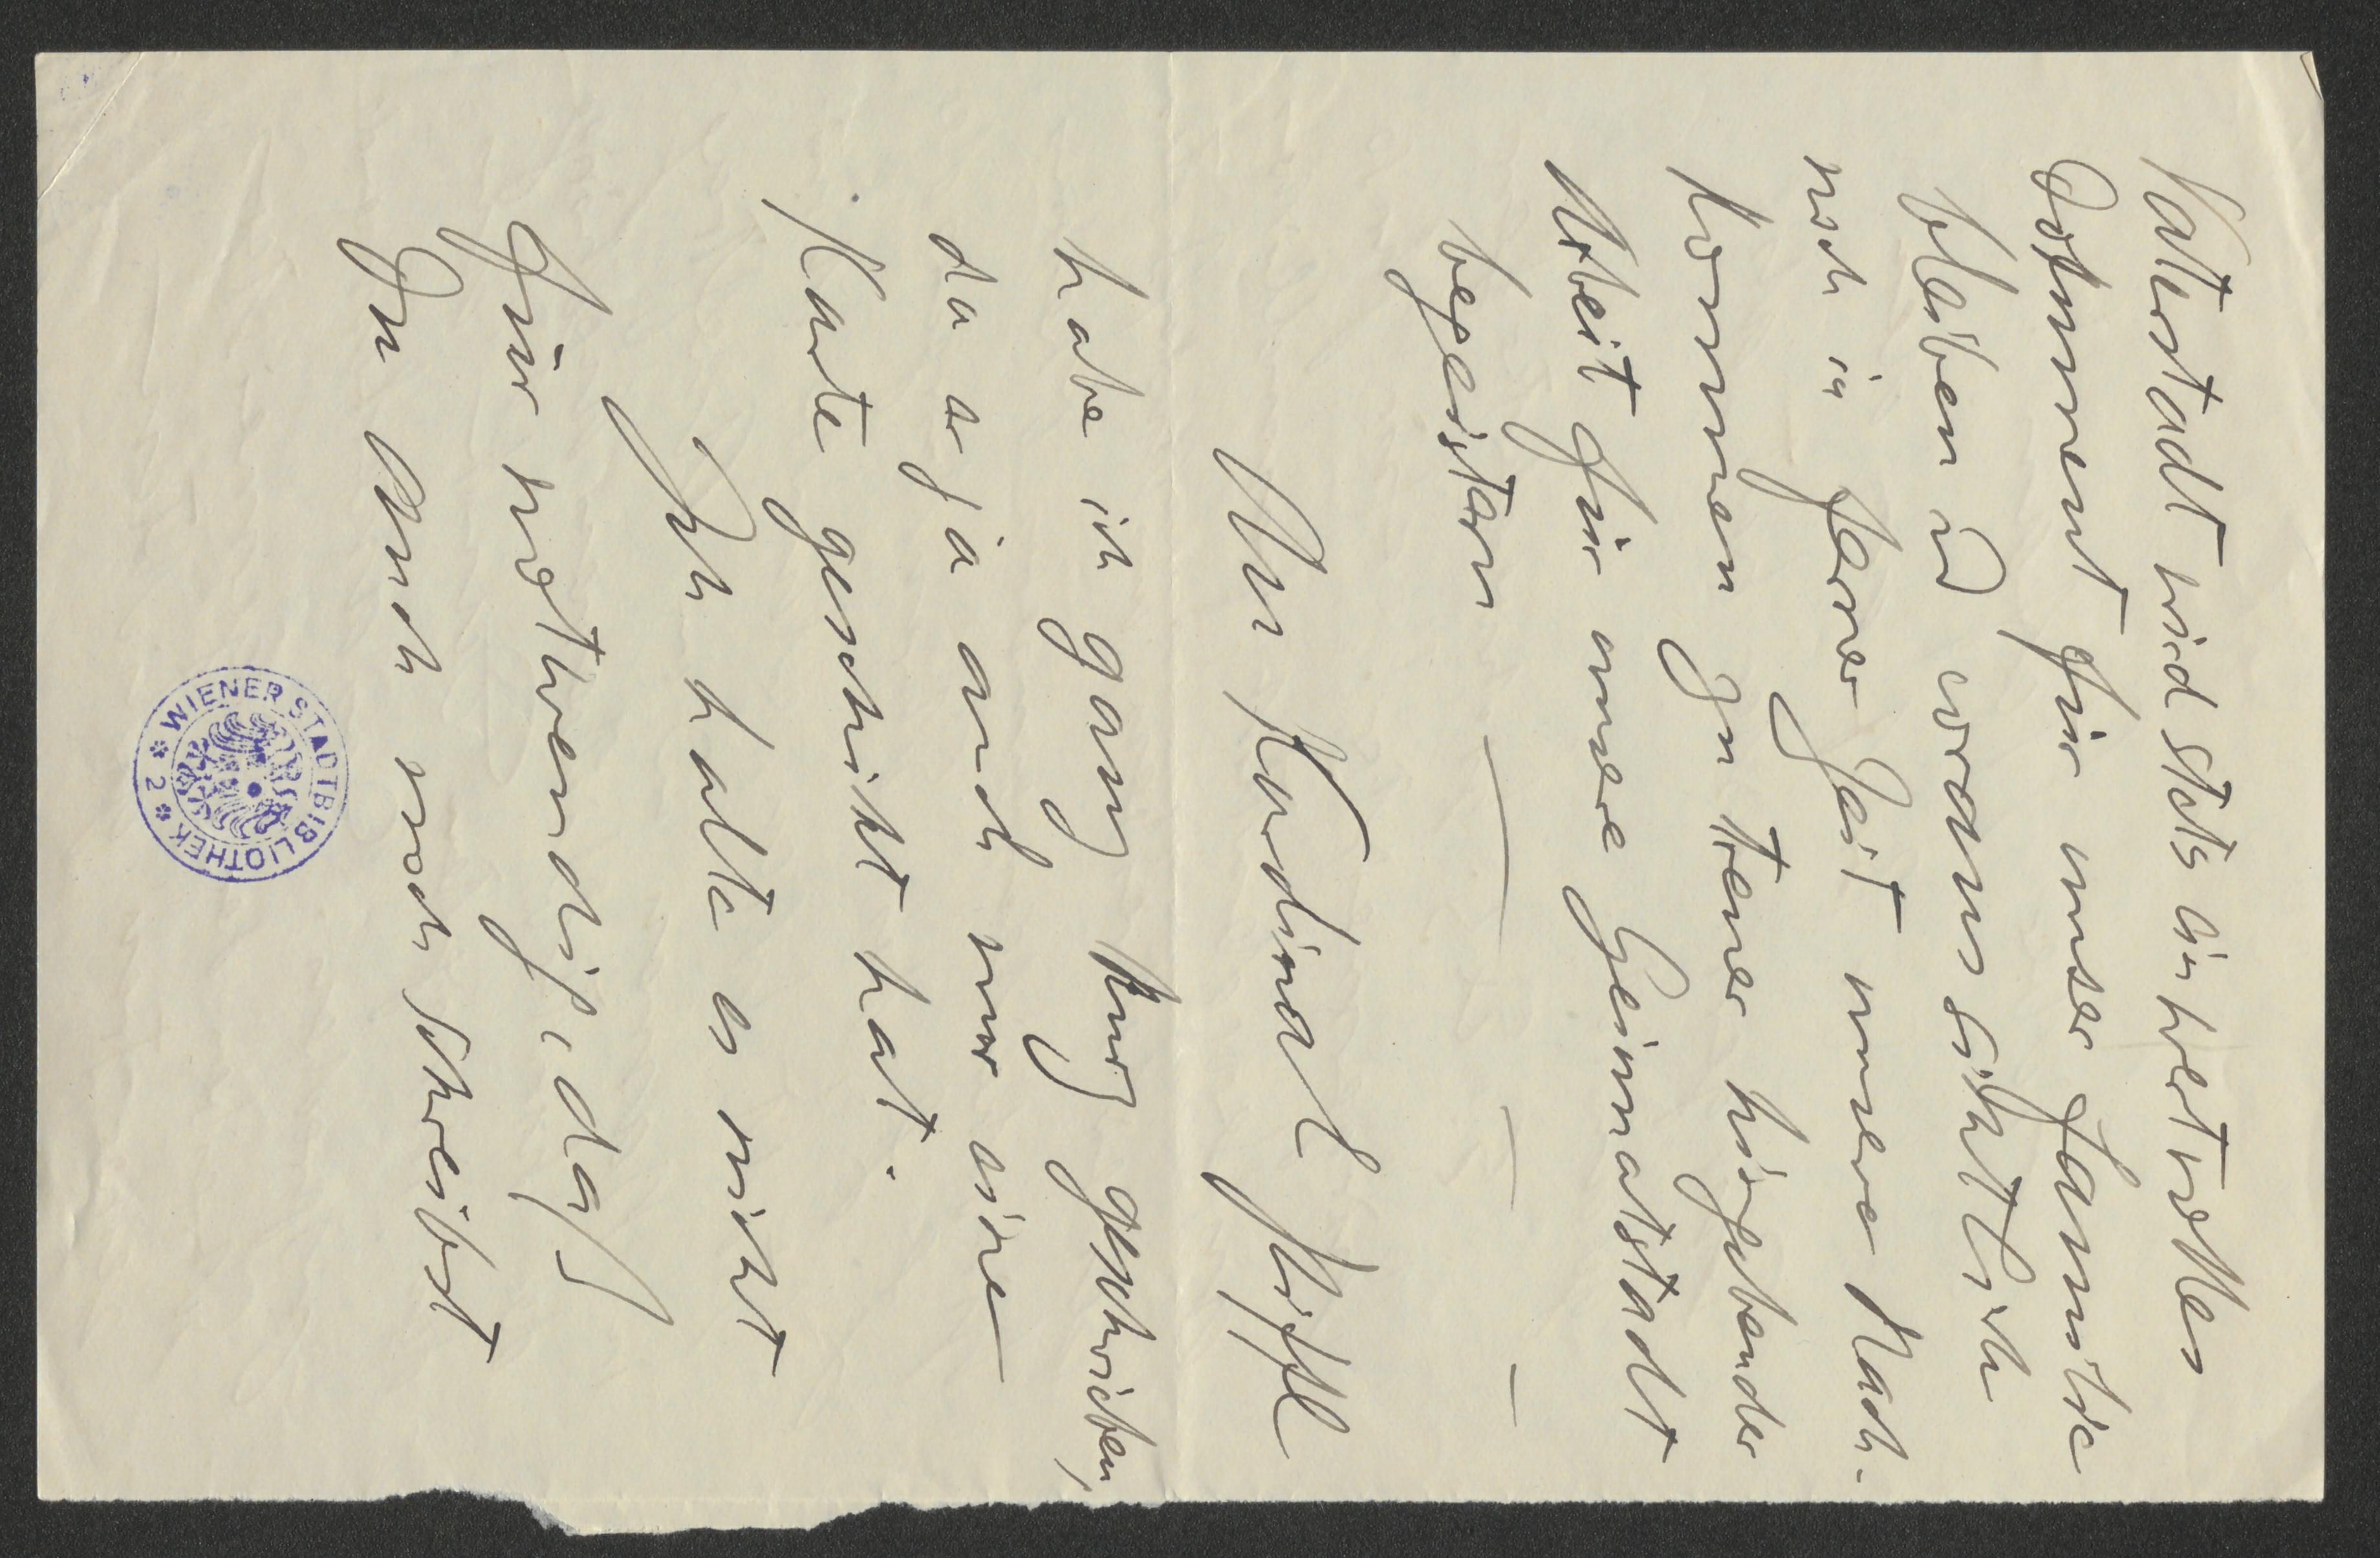 Vaterstadt wird stets ein wertvolles
Dokument für unser Familie
bleiben u. voraussichtlich
noch in ferner Zeit unsere Nach-
kommen zu treuer hingebender
Arbeit für unsere Heimatstadt
begeistern
An Kardinal Piffl
habe ich ganz kurz geschrieben,
da er ja auch nur eine
Karte geschickt hat.
Ich halte es nicht
für nothwendig, daß
Du auch noch schreibst
WIENER STADTBIBLIOTHEK
* 2 *